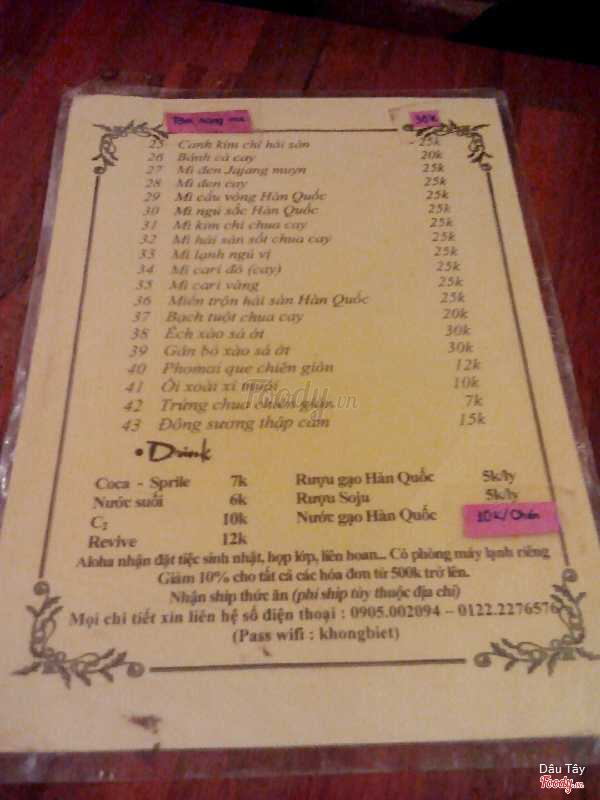 30k
25 Canh kim chi hải sản 25k
26 Bánh cá cay 20k
27 Mì đen Jajang muyn 25k
28 Mì đen cay 25k
29 Mì cầu vồng Hàn Quốc 25k
30 Mì ngũ sắc Hàn Quốc 25k
31 Mì kim chi chua cay 25k
32 Mì hải sản sốt chua cay 25k
33 Mì lạnh ngũ vị 25k
34 Mì cari đỏ (cay) 25k
35 Mì cari vàng 25k
36 Miến trộn hải sản Hàn Quốc 25k
37 Bạch tuột chua cay 20k
38 Ếch xào sả ớt 30k
39 Gân bò xào sả ớt 30k
40 Phomai que chiên giòn 12k
41 Ổi xoài xí muội 10k
42 Trứng chua chiên giòn 7k
43 Đông sương thập cẩm 15k
Foody.vn
• Drink
Coca - Sprile 7k Rượu gạo Hàn Quốc 5k/ly
Nước suối 6k Rượu Soju 5k/ly
C2 10k Nước gạo Hàn Quốc 10k/Chén
Revive 12k
Aloha nhận đặt tiệc sinh nhật, họp lớp, liên hoan... Có phòng máy lạnh riêng
Giảm 10% cho tất cả các hóa đơn từ 500k trở lên.
Nhận ship thức ăn (phí ship tùy thuộc địa chỉ)
Mọi chi tiết xin liên hệ số điện thoại : 0905.002094 – 0122.2276576
(Pass wifi : khongbiet)
Dâu Tây
Foody.vn